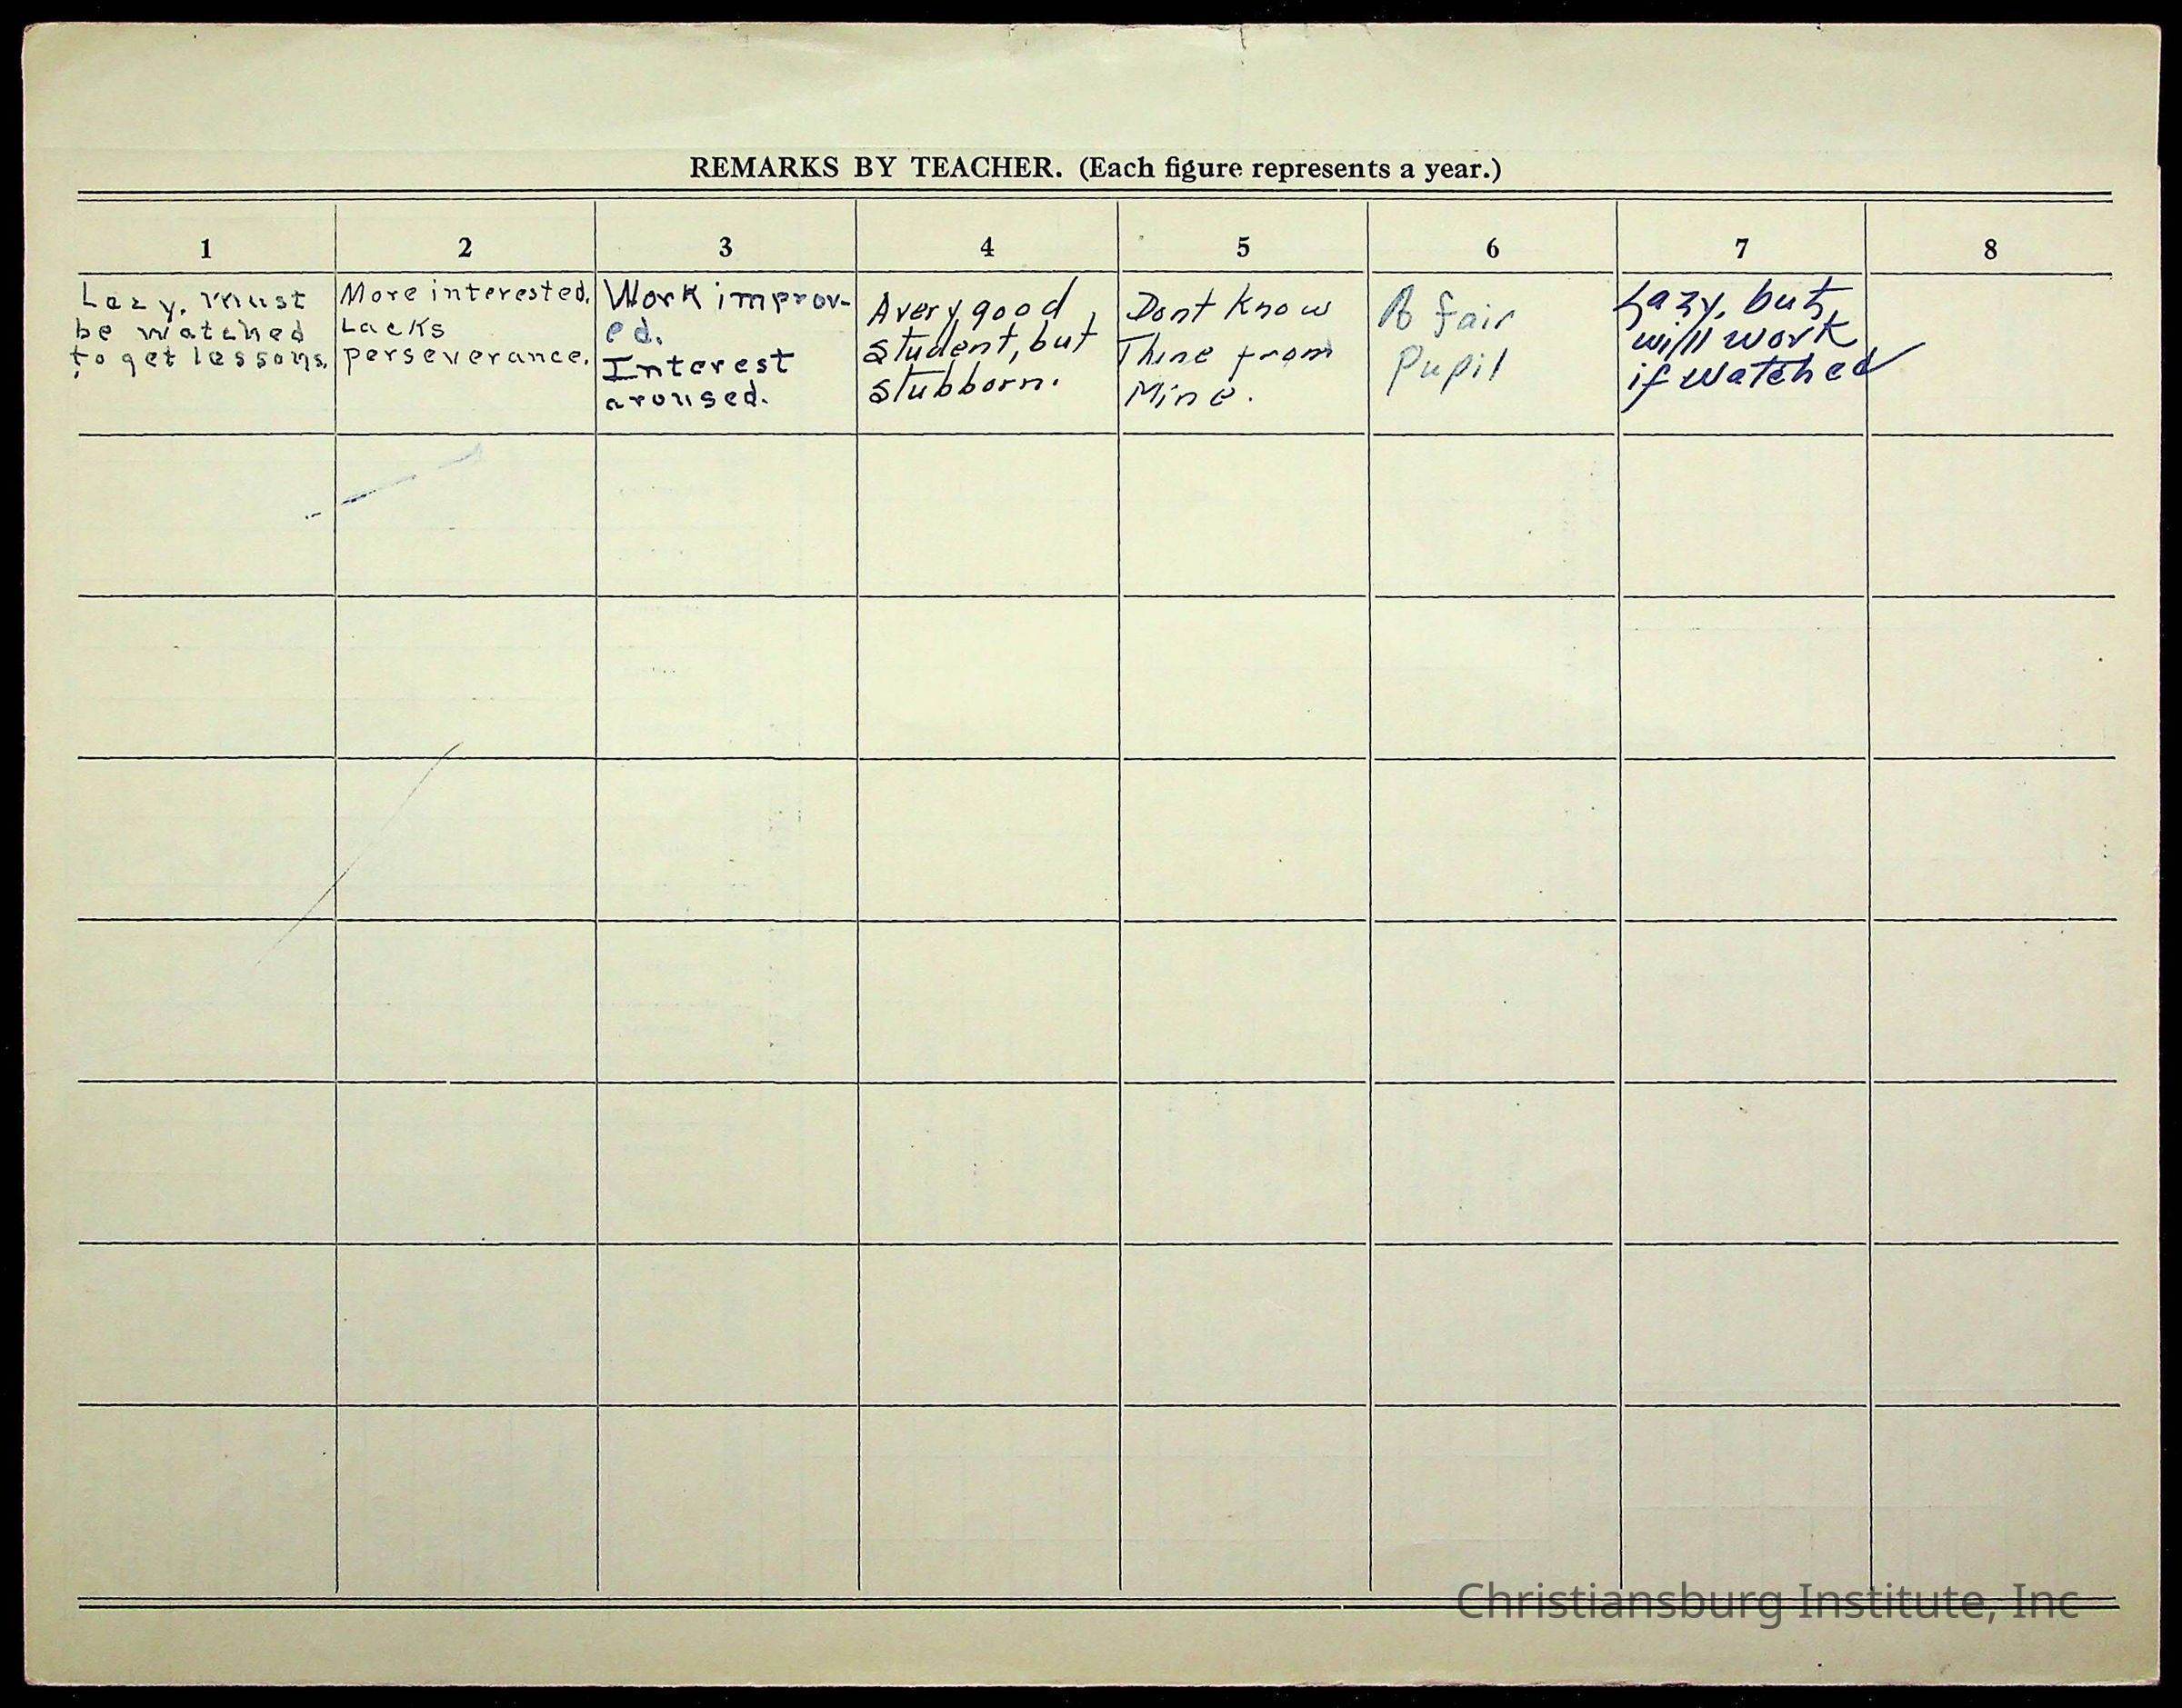 REMARKS BY TEACHER. (Each figure represents a year.)
1 2 3 4 5 6 7 8
Lazy. Must
be watched
to get lessons.
More interested.
Lacks
perseverance.
Work improv-
ed.
Interest
aroused.
A very good
student, but
stubborn.
Dont know
Thine from
Mine.
A fair
Pupil
Lazy, but
will work
if watched
Christiansburg Institute, Inc